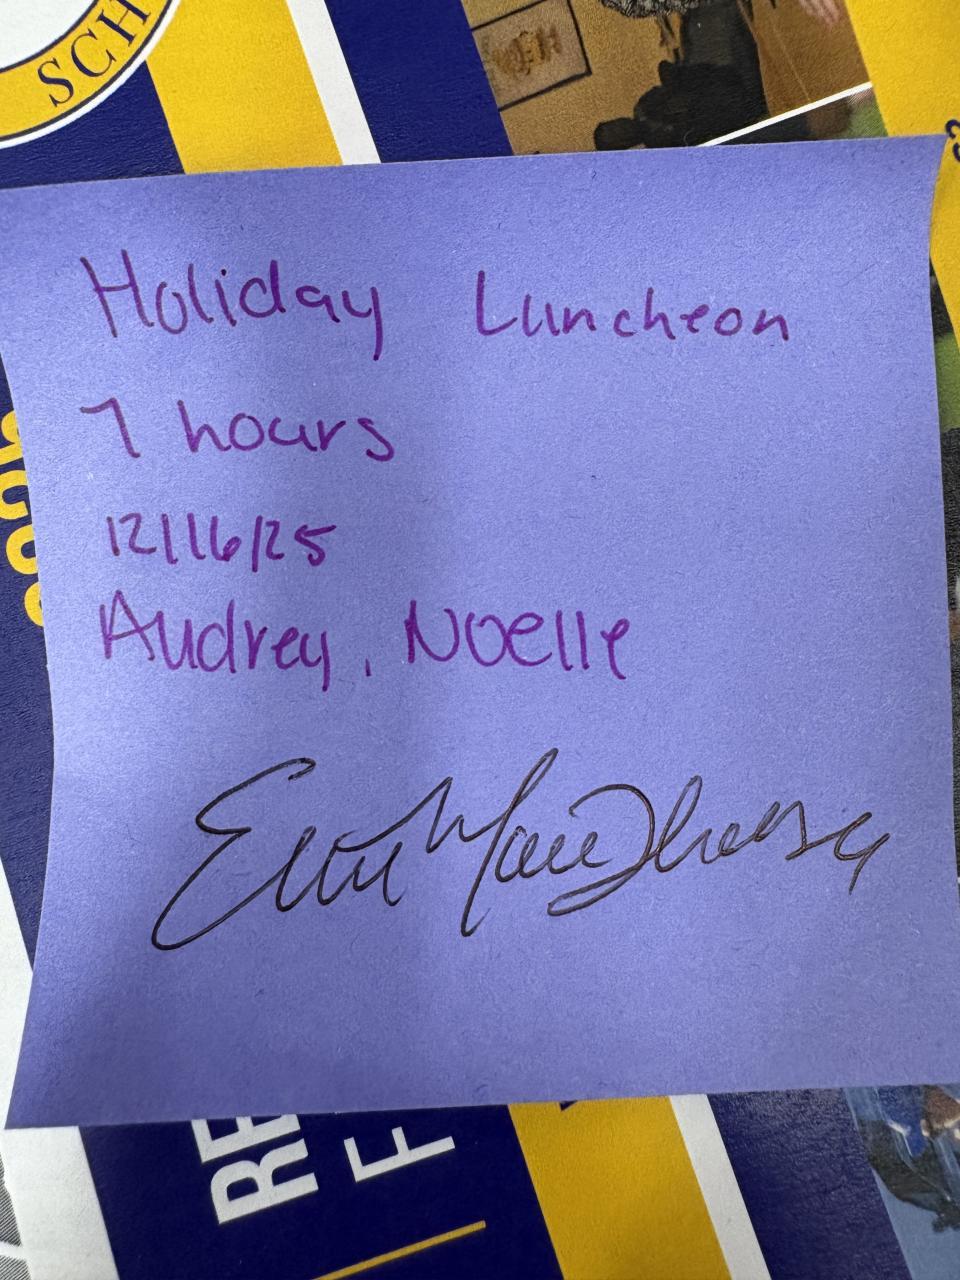 SCH
Holiday Luncheon
7 hours
12/16/25
Audrey, Noelle
RE
F